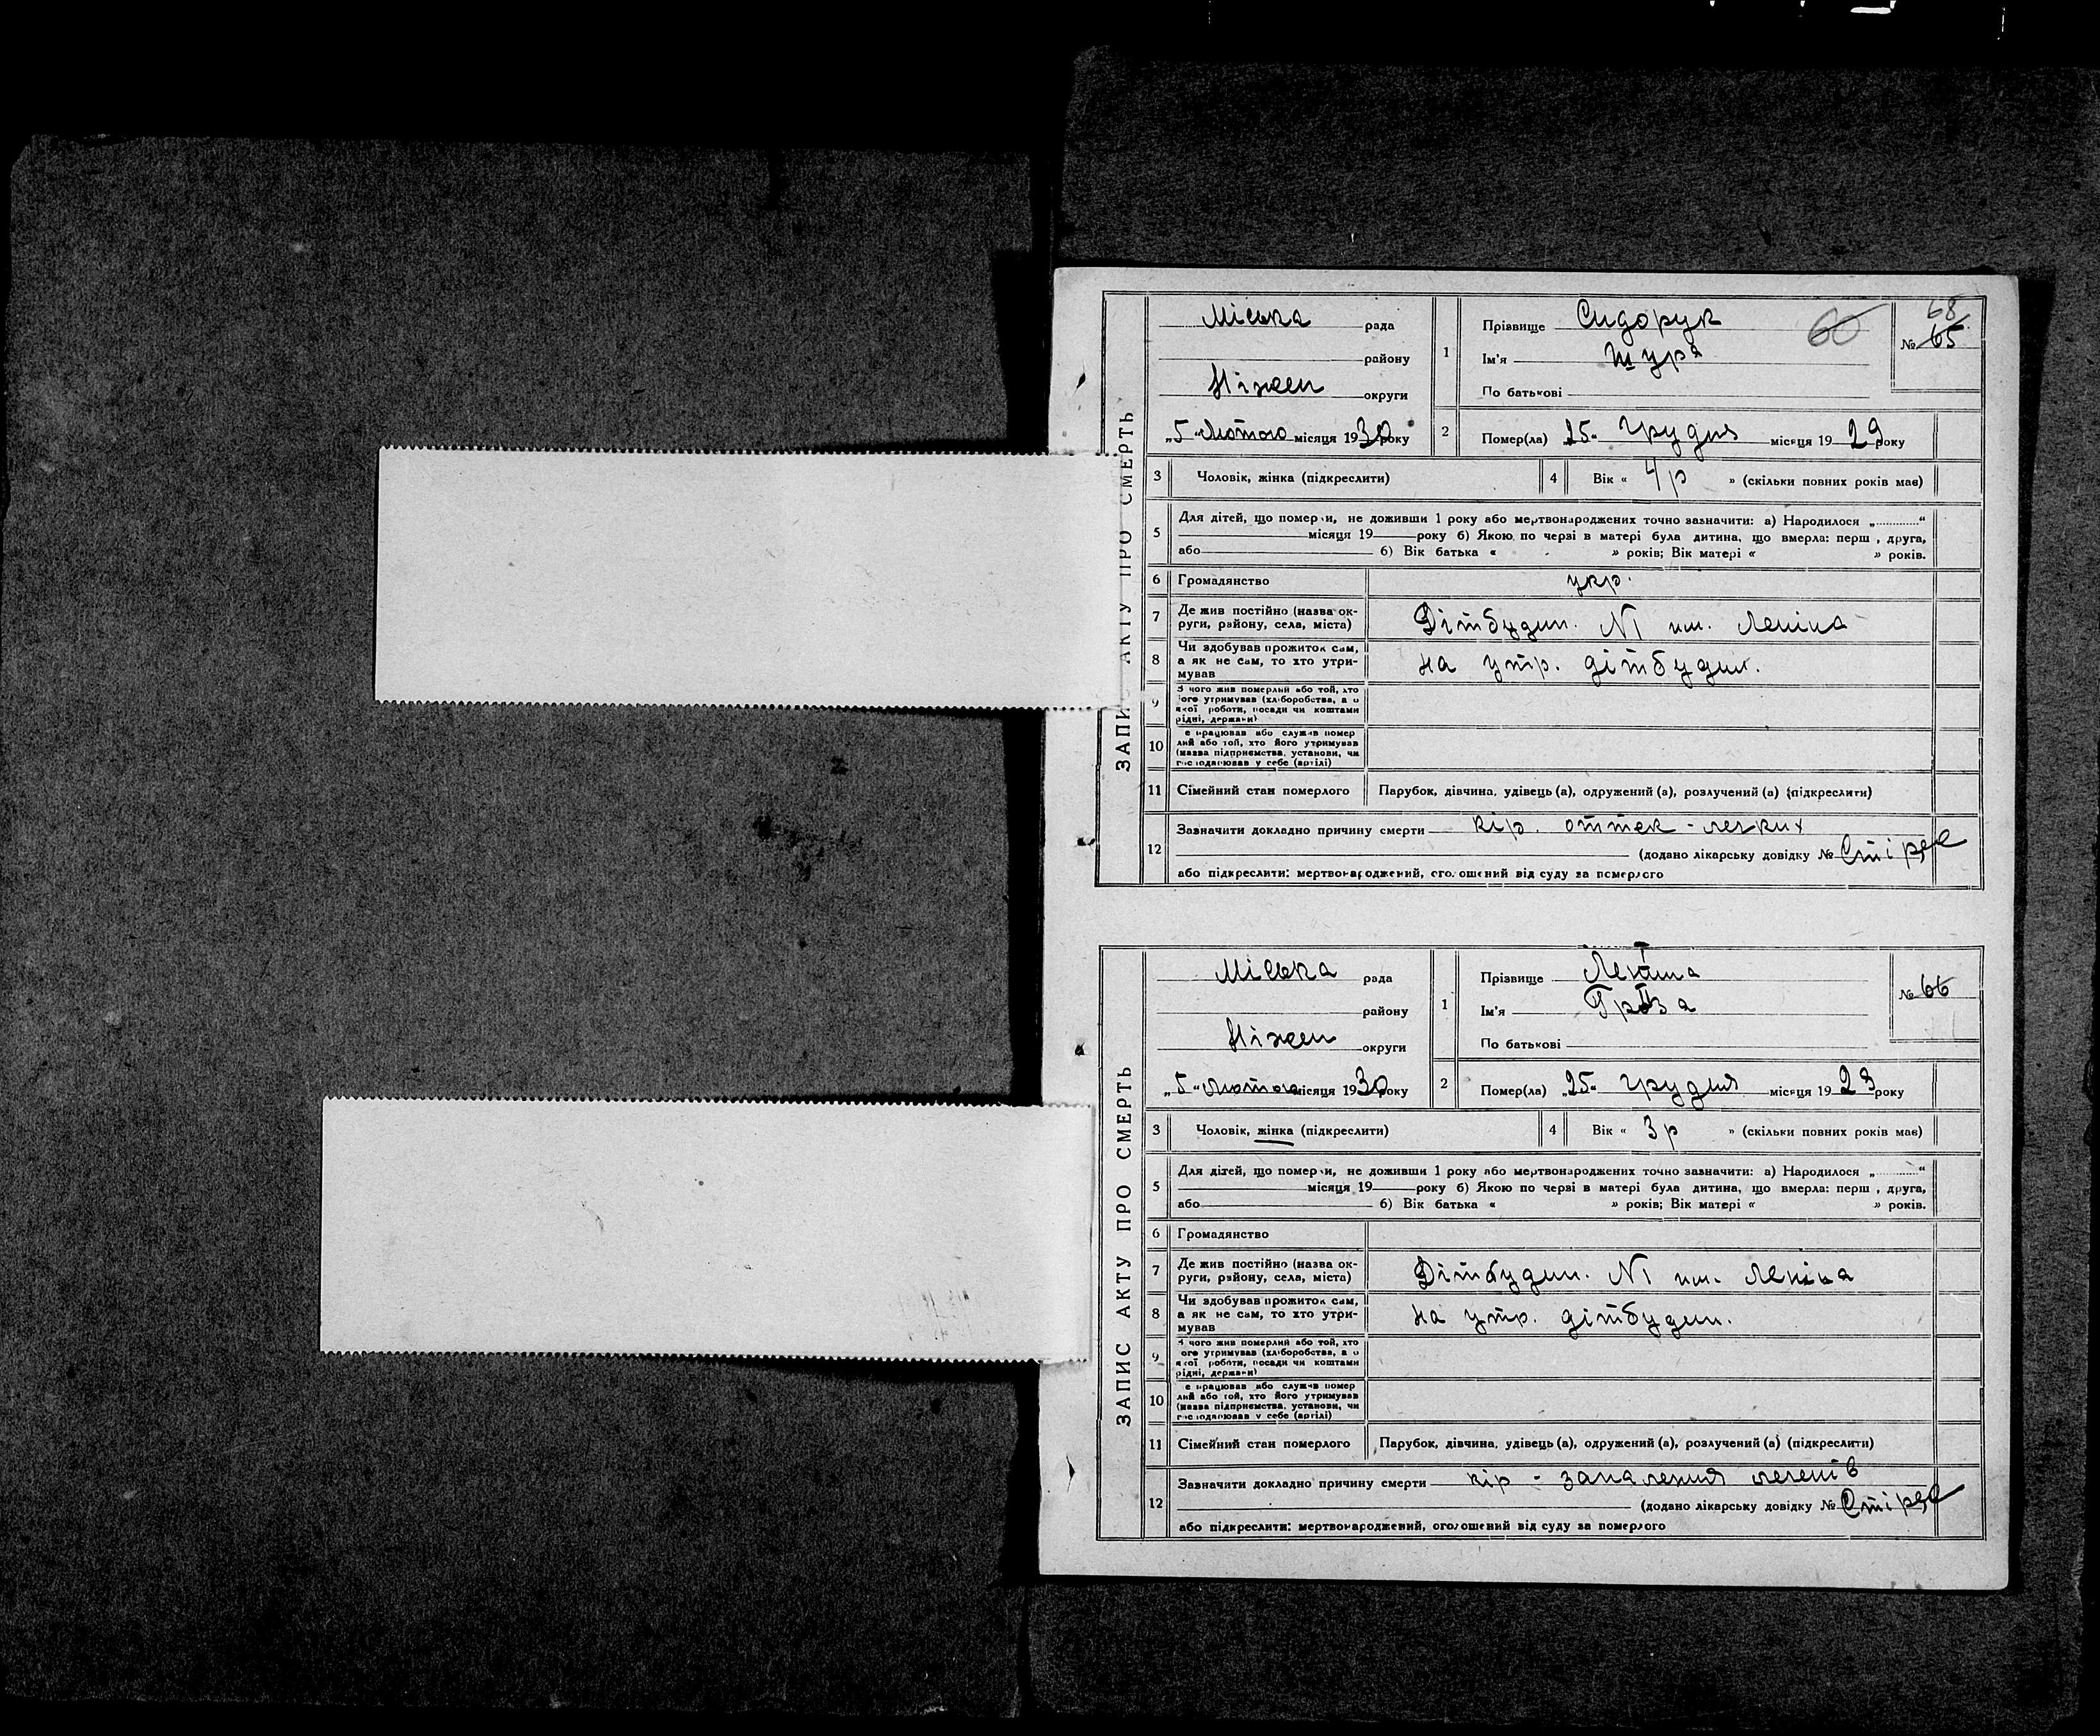 ЗАПИС АКТУ ПРО СМЕРТЬ
Міська рада
району
Ніжен округи
„5“ Лютого місяця 1930 року
1 Прізвище Сидорук
Ім'я Шура
По батькові
60
68
№ 65
2 Помер(ла) 25 Грудня місяця 1929 року
3 Чоловік, жінка (підкреслити)
4 Вік « 4 р » (скільки повних років має)
5 Для дітей, що померли, не доживши 1 року або мертвонароджених точно зазначити: а) Народилося „ “
місяця 19 року б) Якою по черзі в матері була дитина, що вмерла: перш , друга,
або б) Вік батька « » років; Вік матері « » років.
6 Громадянство укр.
7 Де жив постійно (назва округи, району, села, міста) Дітбудин. №1 им. Леніна
8 Чи здобував прожиток сам, а як не сам, то хто утримував на утр. дітбудин.
9 З чого жив померлий або той, хто його утримував (хліборобства, а о якої роботи, посади чи коштами рідні, держави)
10 е працював або служив помер лий або той, хто його утримував (назва підприємства, установи, чи господарював у себе (артілі)
11 Сімейний стан померлого Парубок, дівчина, удівець (а), одружений (а), розлучений (а) (підкреслити)
12 Зазначити докладно причину смерти кір. оттек - легких
(додано лікарську довідку №
або підкреслити: мертвонароджений, оголошений від суду за померлого
ЗАПИС АКТУ ПРО СМЕРТЬ
Міська рада
району
Ніжен округи
„5“ Лютого місяця 1930 року
1 Прізвище
Ім'я
По батькові
№ 66
2 Помер(ла) „25“ грудня місяця 19 року
3 Чоловік, жінка (підкреслити)
4 Вік « 3 р » (скільки повних років має)
5 Для дітей, що померли, не доживши 1 року або мертвонароджених точно зазначити: а) Народилося „ “
місяця 19 року б) Якою по черзі в матері була дитина, що вмерла: перш , друга,
або б) Вік батька « » років; Вік матері « » років.
6 Громадянство
7 Де жив постійно (назва округи, району, села, міста) Дітбудин. №1 им. Леніна
8 Чи здобував прожиток сам, а як не сам, то хто утримував на утр. дітбудин.
9 З чого жив померлий або той, хто його утримував (хліборобства, а о якої роботи, посади чи коштами рідні, держави)
10 е працював або служив помер лий або той, хто його утримував (назва підприємства, установи, чи господарював у себе (артілі)
11 Сімейний стан померлого Парубок, дівчина, удівець (а), одружений (а), розлучений (а) (підкреслити)
12 Зазначити докладно причину смерти кір - запалення легенів
(додано лікарську довідку №
або підкреслити: мертвонароджений, оголошений від суду за померлого